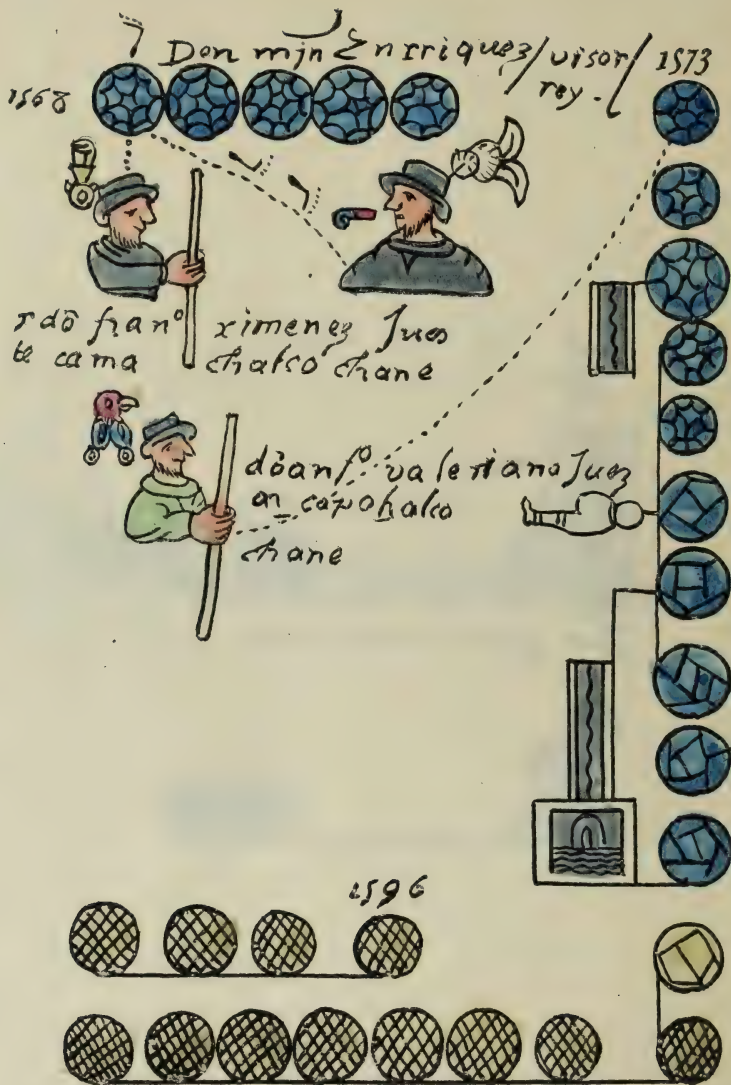 Don mjn Enrriquez / visor / 1573
rey .
1568
r dō fran⁰ ximenez Juez
te cama chalco chane
dō anf⁰ valeriano Juez
azcapohalco
chane
1596